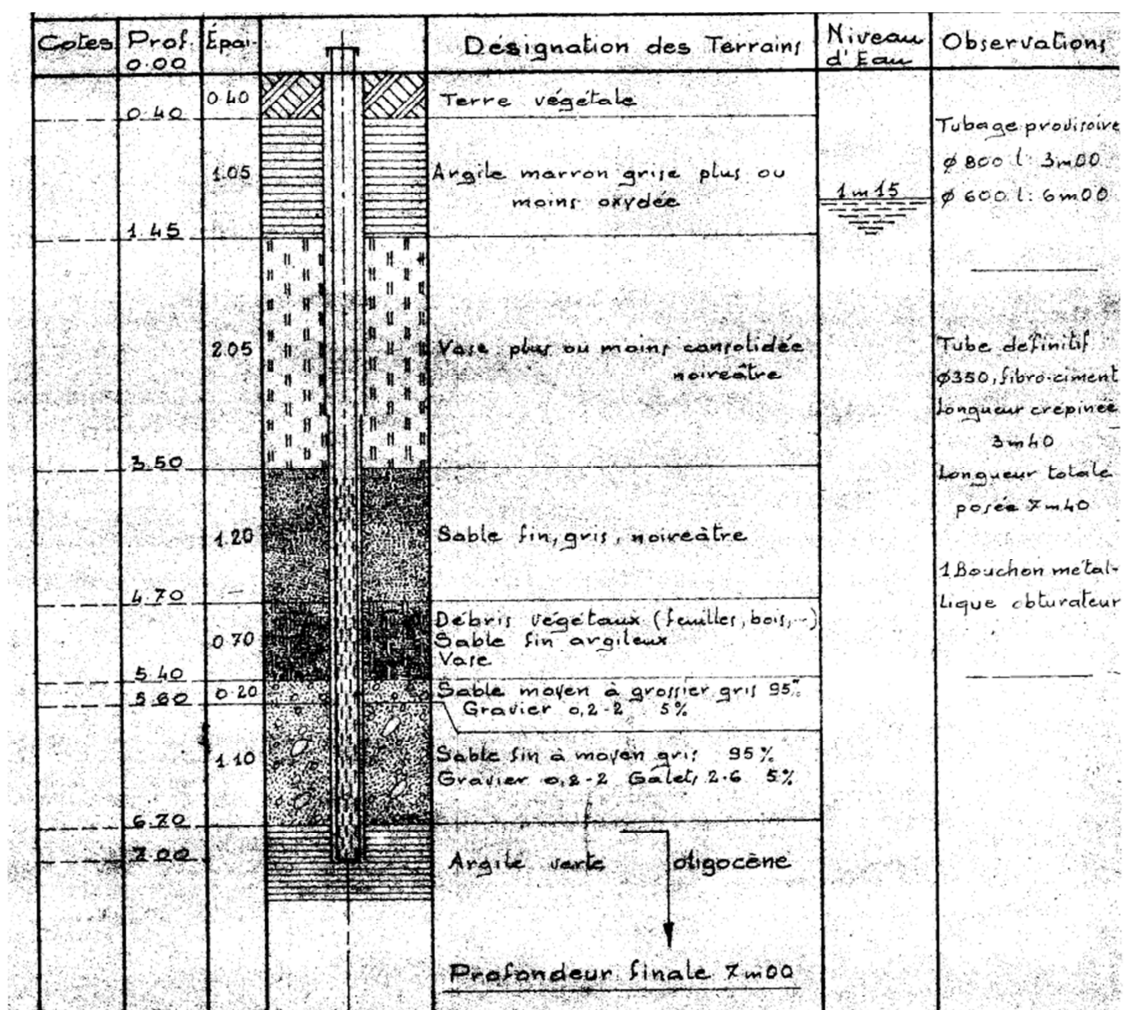 Cotes Prof. Épai- Désignation des Terrains Niveau d'Eau Observations
0.00
0.40 Terre végétale
0.40
Tubage provisoire
ø 800 l: 3m00
ø 600 l: 6m00
1.05 Argile marron grise plus ou
moins oxydée
1m15
1.45
2.05 Vase plus ou moins consolidée
noireâtre
Tube definitif
ø350, fibro-ciment
Longueur crépinée
3m40
Longueur totale
posée 7m40
3.50
1.20 Sable fin, gris, noireâtre
1 Bouchon métal-
lique obturateur
4.70
0.70 Débris végétaux (feuilles, bois,...)
Sable fin argileux
Vase
5.40
0.20 Sable moyen à grossier gris 95%
Gravier 0,2-2 5%
5.60
1.10 Sable fin à moyen gris 95%
Gravier 0,2-2 Galets 2-6 5%
6.70
7.00
Argile verte oligocène
Profondeur finale 7m00